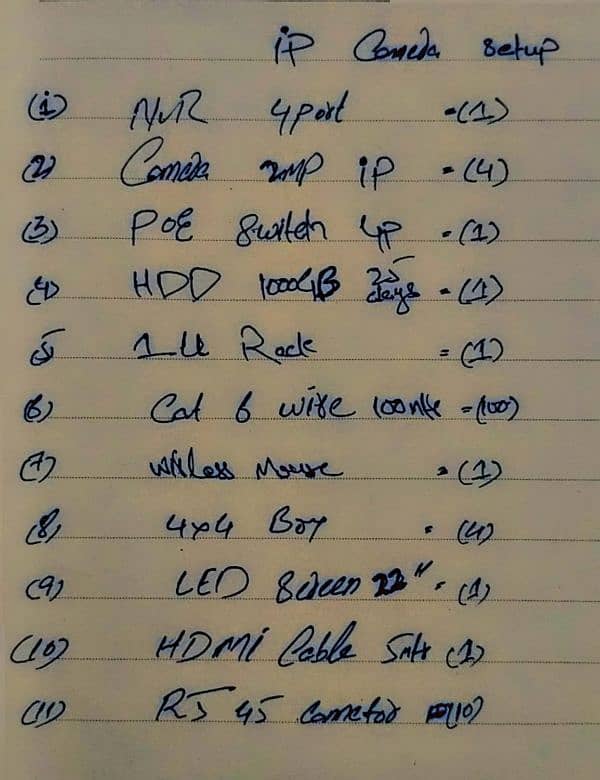 iP Camera setup
(1) NVR 4port =(1)
(2) Camera 2MP iP =(4)
(3) POE Switch 4P =(1)
(4) HDD 1000GB 25 days =(1)
5 1U Rack =(1)
(6) Cat 6 wire 100mtr =(100)
(7) wireless Mouse =(1)
(8) 4x4 Box = (4)
(9) LED Screen 22" = (1)
(10) HDMI Cable 5mtr (1)
(11) RJ 45 conector =(10)